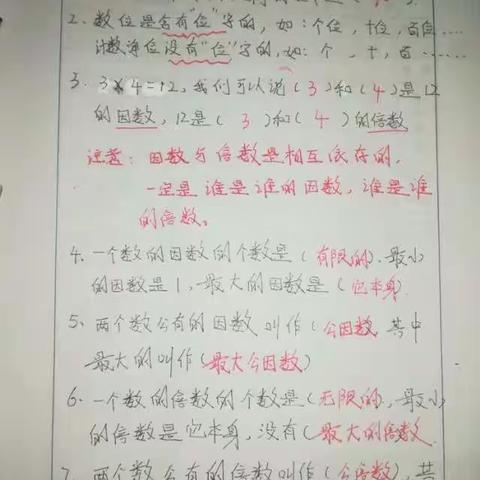 2、数位是含有"位"字的，如：个位，十位，百位……
计数单位没有"位"字的，如：个，十，百……
3、3×4=12，我们可以说（3）和（4）是12
的因数，12是（3）和（4）的倍数
注意：因数与倍数是相互依存的，
一定是谁是谁的因数，谁是谁
的倍数。
4、一个数的因数的个数是（有限的），最小
的因数是1，最大的因数是（它本身
5、两个数公有的因数叫作（公因数，其中
最大的叫作（最大公因数）
6、一个数的倍数的个数是（无限的），最小
的倍数是它本身，没有（最大的倍数
7、两个数公有的倍数叫作（公倍数），其